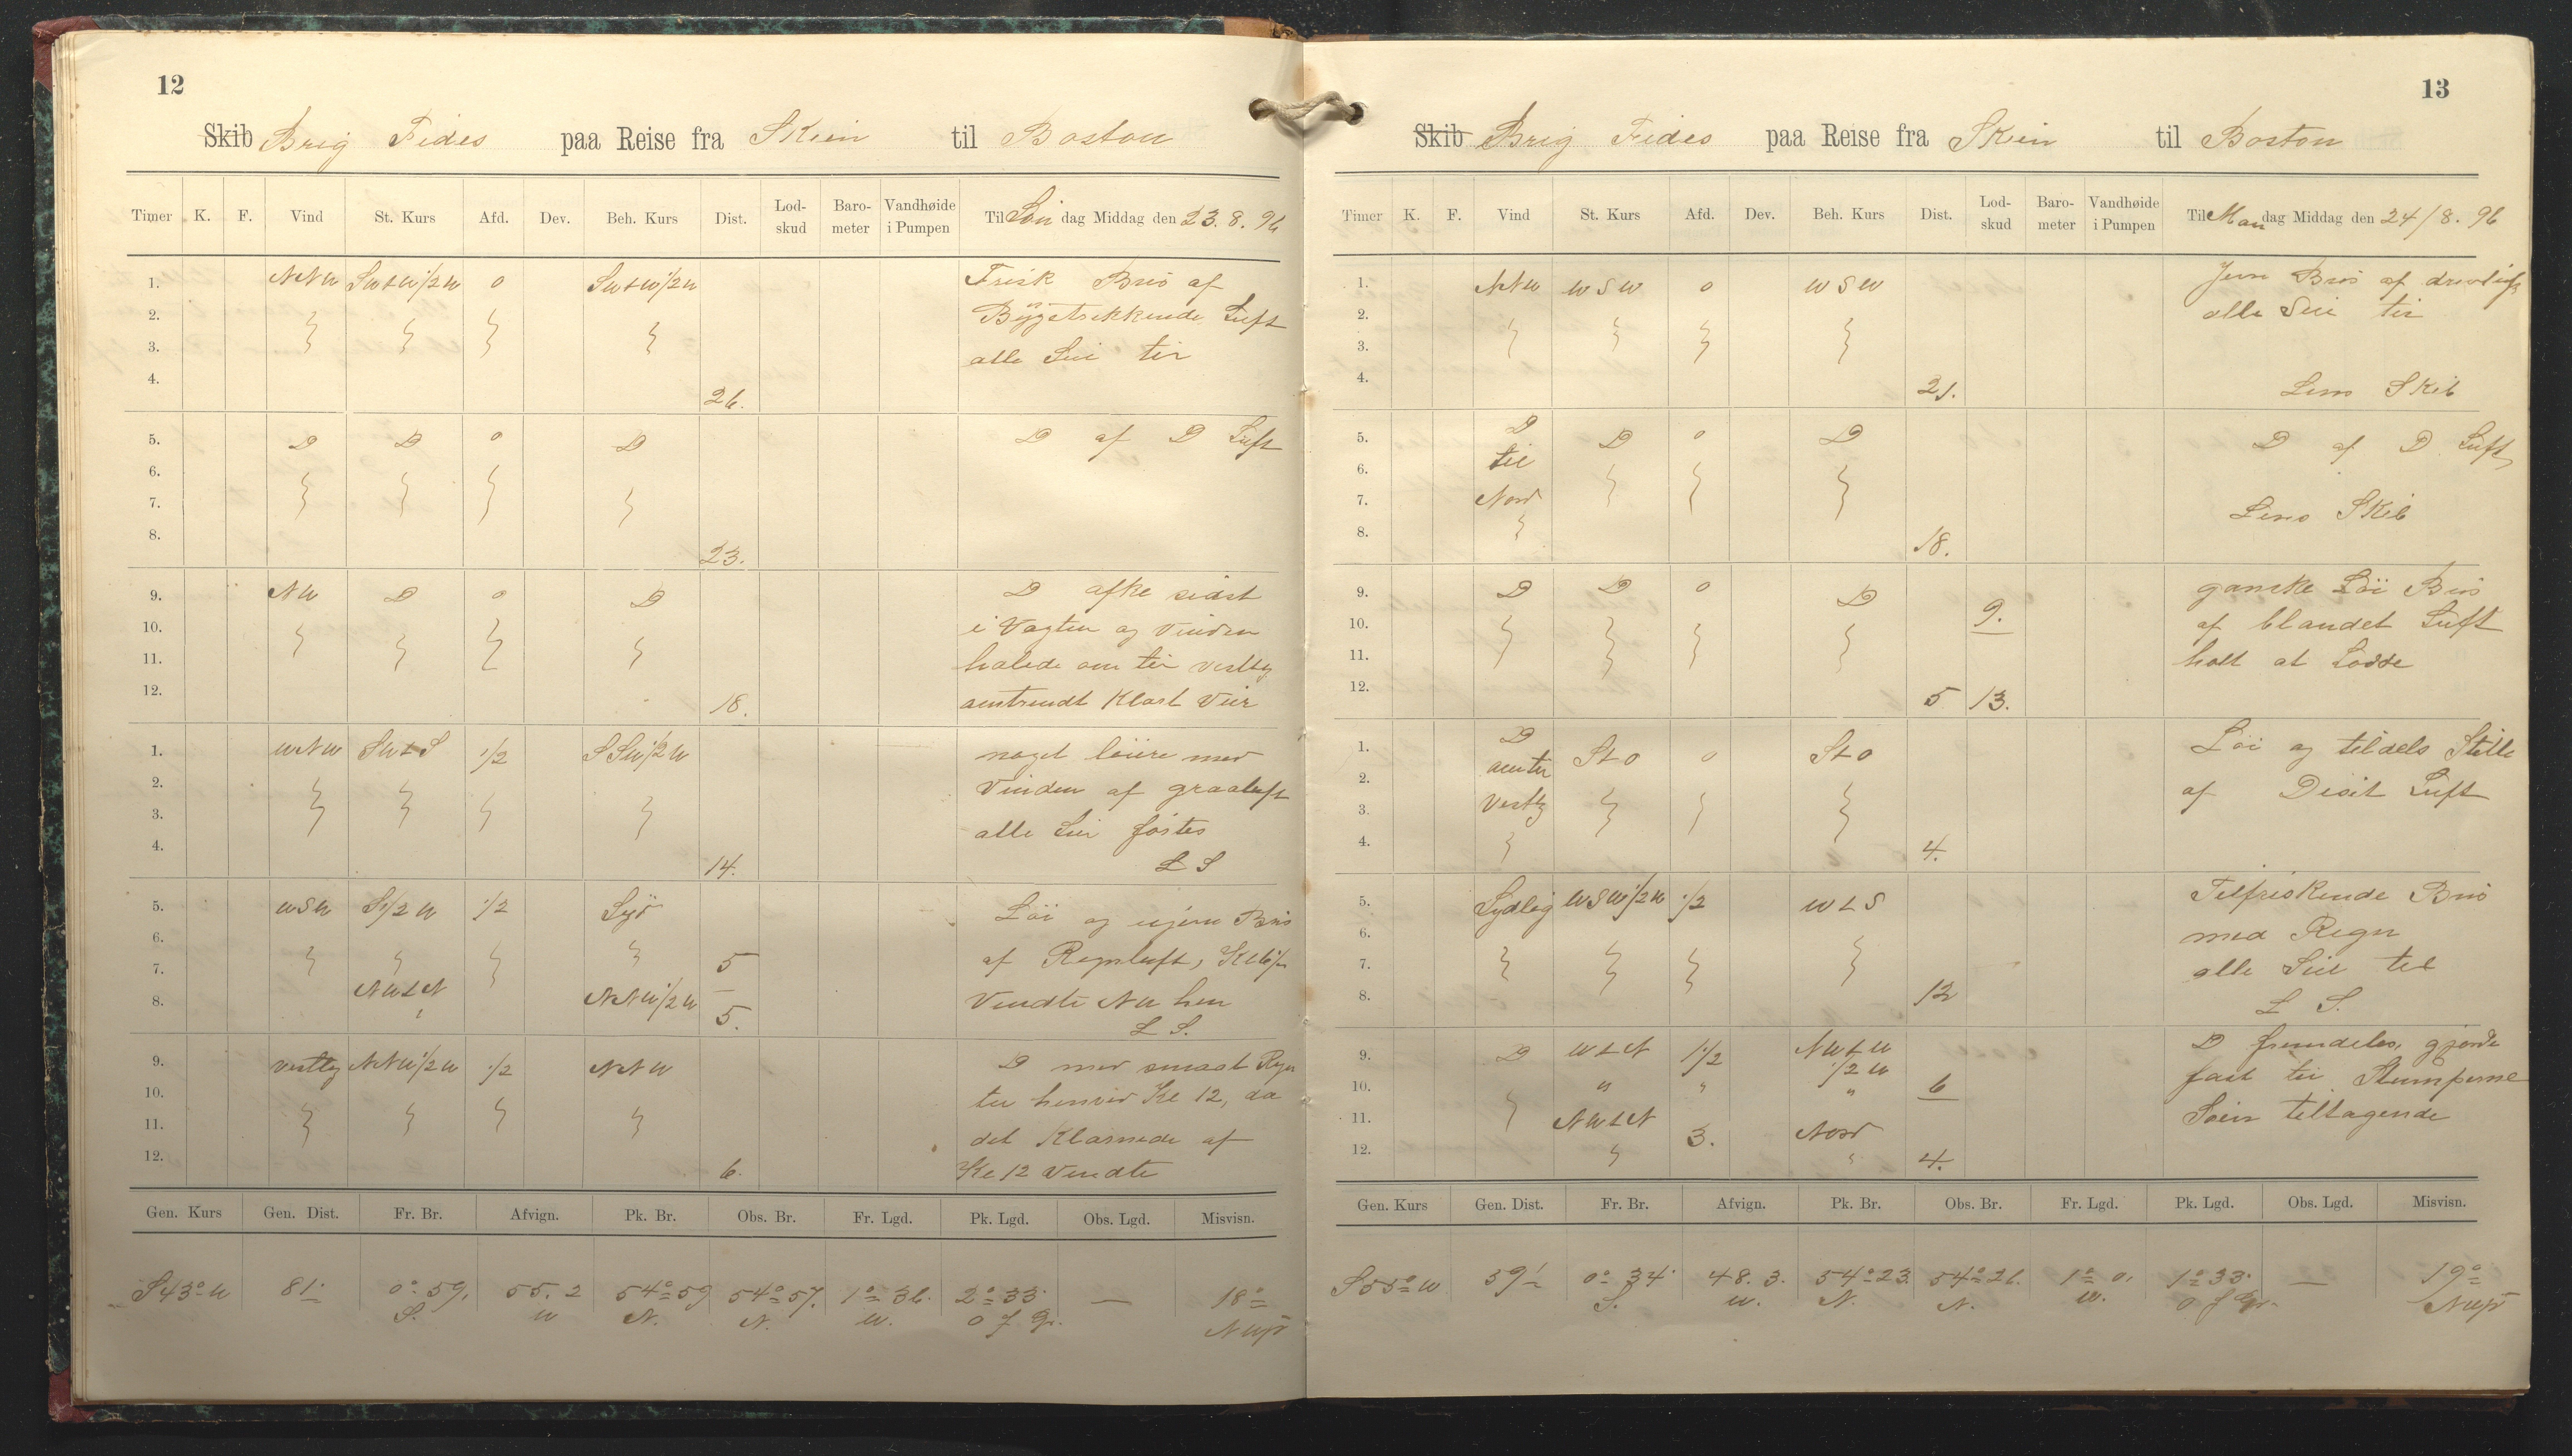 12
Skib Brig Fides paa Reise fra Skien til Boston
Timer K. F. Vind St. Kurs Afd. Dev. Beh. Kurs Dist. Lod-skud Baro-meter Vandhøide i Pumpen Til Søn dag Middag den 23. 8. 96
1. NNW SWtW 1/2 W 0 SWtW 1/2 W Frisk Bris af
2. Bygetrekkende Luft
3. alle Seil til
4. 26.
5. D D 0 D D af D Luft
6.
7.
8. 23.
9. NW D 0 D D afke sidst
10. i Vagten og Vinden
11. halede om til vestlig
12. 18. omtrendt Klart Veir
1. WNW SWtS 1/2 SSW 1/2 W noget løiere med
2. Vinden af graaluft
3. alle Seil føstes
4. 14. L S
5. WSW S 1/2 W 1/2 Syd Løi og ujevn Bris
6. 5 af Regnluft, Kl 6 1/2
7. NWtN NNW 1/2 W Vendte NW hen
8. 5. L S.
9. vestlig NNW 1/2 W 1/2 NNW D med smaat Regn
10. til henved Kl 12, da
11. det Klarnede af
12. 6. Kl 12 Vendte
Gen. Kurs Gen. Dist. Fr. Br. Afvign. Pk. Br. Obs. Br. Fr. Lgd. Pk. Lgd. Obs. Lgd. Misvisn.
S 43° W 81' 0° 59, S. 55. 2 W 54° 59 N. 54° 57. N. 1° 36. W. 2° 33' O f Gr. — 18° NWst
13
Skib Brig Fides paa Reise fra Skien til Boston
Timer K. F. Vind St. Kurs Afd. Dev. Beh. Kurs Dist. Lod-skud Baro-meter Vandhøide i Pumpen Til Man dag Middag den 24/8. 96
1. NNW WSW 0 WSW Jevn Bris af
2. alle Seil til
3.
4. 21. Lens Skib
5. D D 0 D D af D Luft
6. til
7. Nord Lens Skib
8. 18.
9. D D 0 D 9. ganske Løi Bris
10. af blandet Luft
11. holt at Lodde
12. 5 13.
1. D StO 0 StO Løi og tildels Stille
2. omter af Disit Luft
3. Vestlig
4. 4.
5. Sydlig WSW 1/2 W 1/2 WtS Tilfriskende Bris
6. med Regn
7. alle Seil til
8. 12 L S.
9. D WtN 1 1/2 NWtW 1/2 W D fremdeles, gjorde
10. " " " 6 fast til Stumperne
11. NWtN 3. Nord Søen tiltagende
12. " 4.
Gen. Kurs Gen. Dist. Fr. Br. Afvign. Pk. Br. Obs. Br. Fr. Lgd. Pk. Lgd. Obs. Lgd. Misvisn.
S 55° W 59' 0° 34' S. 48. 3. W. 54° 23. N. 54° 26. N. 1° 0, W. 1° 33' O f Gr. — 19° NWst